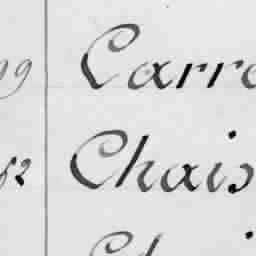 99 Carre
52 Chais